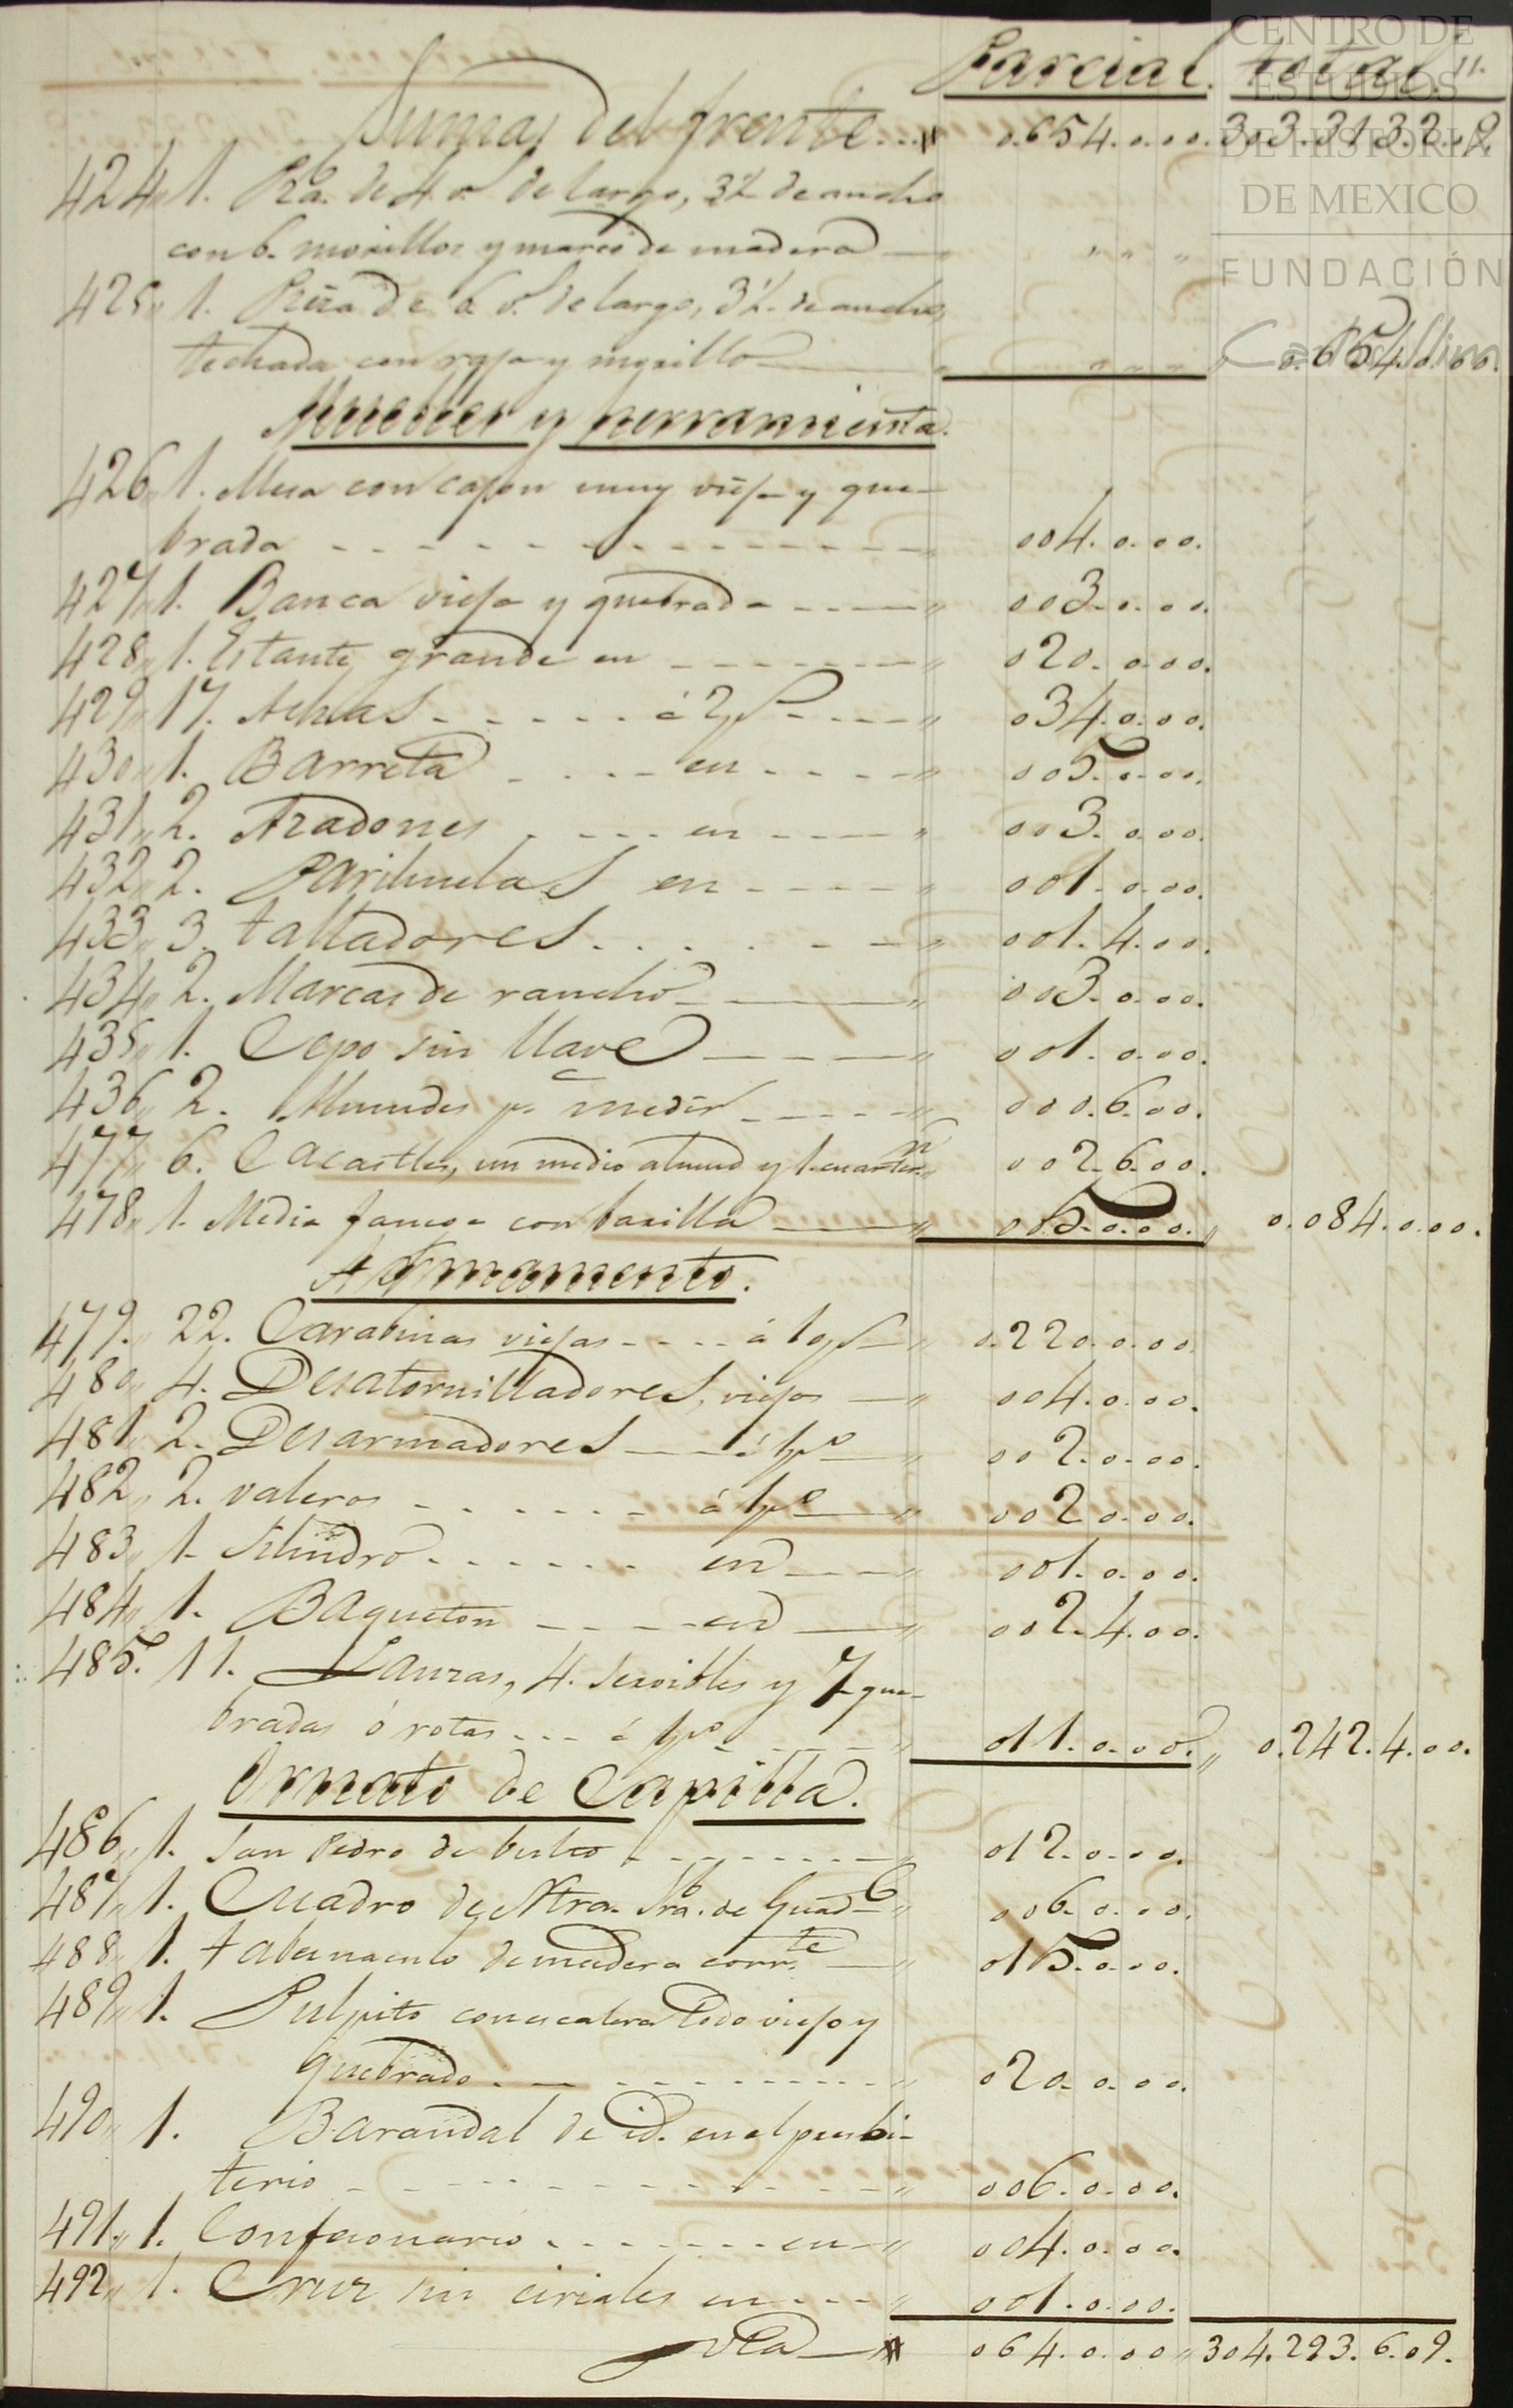 CENTRO DE
ESTUDIOS
DE HISTORIA
DE MEXICO
FUNDACIÓN
Carlos Slim
Parcial. total. 11.
Sumas del frente... " 0.654.0.00. 303.313.2.09.
424 " 1. Pza. de 4. vs. de largo, 3½ de ancho
con 6. morillos y marco de madera " " "
425 " 1. Pieza de 6 vs. de largo, 3½ de ancho,
techada con raja y morillo " " " 0.654.0.00.
Muebles y herramienta.
426 " 1. Mesa con cajon muy viejo y que-
brada - - - 004.0.00.
427 " 1. Banca vieja y quebrada - - - " 003.0.00.
428 " 1. Estante grande en - - - " 020.0.00.
429 " 17. Achas - - - á 2 ps - - - " 034.0.00.
430 " 1. Barreta - - - en - - - " 005.0.00.
431 " 2. Azadones - - - en - - - " 003.0.00.
432 " 2. Parihuelas en - - - " 001.0.00.
433 " 3. taltadores - - - " 001.4.00.
434 " 2. Marcas de rancho - - - " 003.0.00.
435 " 1. Cepo sin llave - - - " 001.0.00.
436 " 2. Almudes pa. medir - - - " 000.6.00.
477 " 6. Cacastles, un medio almud y 1. cuarteron " 002.6.00.
478 " 1. Media fanega con barilla - - - " 005.0.00. " 0.084.0.00.
Armamento.
479. " 22. Carabinas viejas - - - á 10 ps - " 0.220.0.00.
480 " 4. Desatornilladores, viejos - " 004.0.00.
481 " 2. Desarmadores - - - á 1 po - " 002.0.00.
482 " 2. valeros - - - á 1 po - " 002.0.00.
483 " 1. Silindro - - - en - - " 001.0.00.
484 " 1. Baqueton - - - en - " 002.4.00.
485. 11. Lanzas, 4. servibles y 7 que-
bradas ó rotas - - - á 1 po - - - " 011.0.00. " 0.242.4.00.
Ornato de Capilla.
486 " 1. San Pedro de bulto - - - " 012.0.00.
487 " 1. Cuadro de Ntra. Sra. de Guade " 006.0.00.
488 " 1. tabernaculo de madera corrte. - " 015.0.00.
489 " 1. Pulpito con escalera todo viejo y
quebrado - - - " 020.0.00.
490 " 1. Barandal de id. en el presbi-
terio - - - " 006.0.00.
491. " 1. Confesonario - - - en - " 004.0.00.
492 " 1. Cruz sin ciriales en - - - " 001.0.00.
vta - " 064.0.00 " 304.293.6.09.